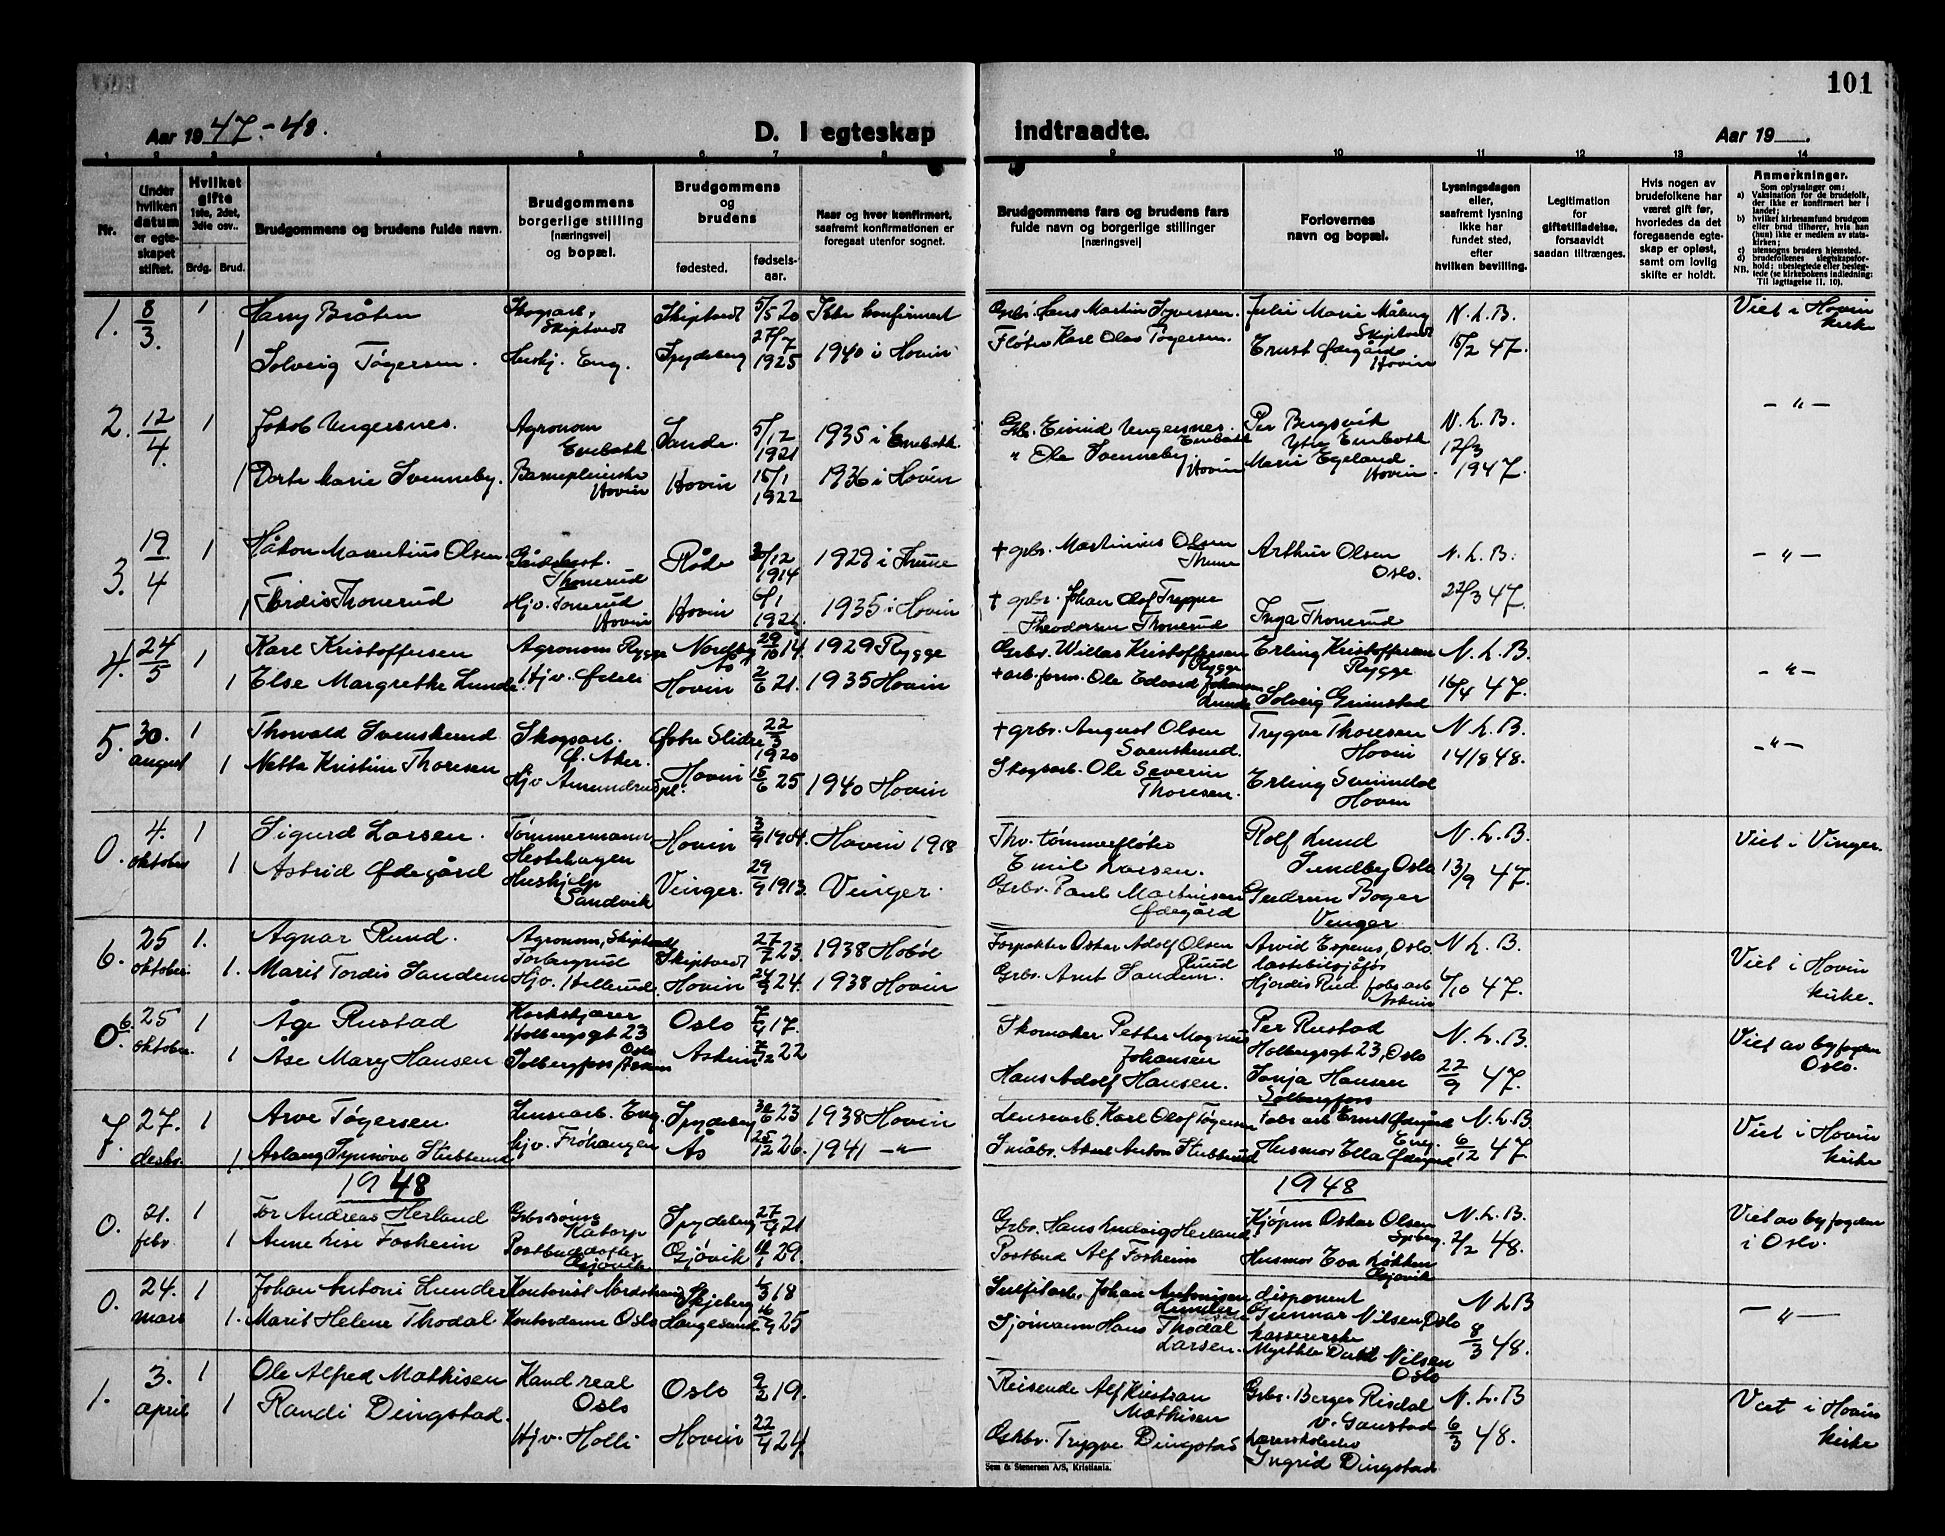 101
Aar 1947.-48.
D. I egteskap indtraadte.
Aar 19___.
1 2 3 4 5 6 7 8 9 10 11 12 13 14
Nr.
Under hvilken datum er egte-skapet stiftet.
Hvilket gifte 1ste, 2det, 3die osv..
Brdg. Brud.
Brudgommens og brudens fulde navn.
Brudgommens borgerlige stilling (næringsvei) og bopæl.
Brudgommens og brudens
fødested. fødsels-aar.
Naar og hvor konfirmert, saafremt konfirmationen er foregaat utenfor sognet.
Brudgommens fars og brudens fars fulde navn og borgerlige stillinger (næringsvei)
Forlovernes navn og bopæl.
Lysningsdagen eller, saafremt lysning ikke har fundet sted, efter hvilken bevilling.
Legitimation for giftetilladelse, forsaavidt saadan tiltrænges.
Hvis nogen av brudefolkene har været gift før, hvorledes da det foregaaende egte-skap er opløst, samt om lovlig skifte er holdt.
Anmerkninger.
Som oplysninger om:
a) Vaksination for de brudefolk, der ikke er konfirmert her i landet;
b) hvilket kirkesamfund brudgom eller brud tilhører, hvis han (hun) ikke er medlem av stats-kirken;
c) utensogns bruders hjemsted.
d) brudefolkenes slegtskapsfor-hold: ubeslegtede eller besleg-tede (se kirkebokens indledning: Til iagttagelse II. 10).
NB.
1. 8/3. 1 Harry Bråten Skogsarb, Skiptvedt Skiptvedt 5/5 20 Ikke konfirmert Grbr. Hans Martin Syversen. Julie Marie Måberg Skiptvedt N.L.B. Viet i Hovin kirke
1 Solveig Tøgersen. Hushj. Eng. Spydeberg 27/7 1925 1940 i Hovin Fløter Karl Olav Tøgersen. Ernst Ødegård Hovin 15/2 47.
2. 12/4. 1 Jakob Ungersnes. Agronom Enebakk Sande. 5/12 1921 1935 i Enebakk. Grb. Eivind Ungersnes. Enebakk Per Bergsvik Ytre Enebakk N.L.B. — " —
1 Dorte Marie Svenneby. Barnepleierske Hovin Hovin 15/1 1922 1936 i Hovin " Ole Svenneby. Hovin Marie Egeland Hovin. 12/3 1947.
3. 19/4 1 Håkon Mauritius Olsen Gårdsbest. Thonerud Råde 30/12 1914 1929 i Thune + grbr. Martinius Olsen Thune Arthur Olsen Oslo. N.L.B. — " —
1 Tordis Thonerud Hjv. Tonerud Hovin Hovin 6/1 1921 1935 i Hovin + grbr. Johan Olof Trygve Theodorsen Thonerud Inga Thonerud 22/3 47.
4. 24/5 1 Karl Kristoffersen Agronom Rygge Nordby Ås 29/10 14. 1929 Rygge Grbr. Willas Kristoffersen Rygge Erling Kristoffersen Rygge N.L.B. — " —
1 Else Margrethe Lunde Hjv. Hovin 2/6 21. 1935 Hovin + arb.form. Ole Edvard Johansen Lunde Solveig Grimstad 16/4 47.
5. 30. august 1 Thorvald Svenskerud Skogsarb. Ø. Aker. Østre Slidre 22/3 1920 + grbr. August Olsen Svenskerud. Trygve Thoresen Hovin N.L.B. — " —
1 Netta Kristine Thoresen Hjv Amundrud pl. Hovin 15/6 25 1940 Hovin Skogsarb. Ole Severin Thoresen. Erling Smindal Hoven 14/8 48.
0. 4. oktober 1 Sigurd Larsen. Tømmermann Hestehagen Hovin 3/9 1904. Hovin 1918 Thv. tømmerfløter Emil Larsen. Rolf Lund Sundby Oslo N.L.B. Viet i Vinger.
1 Astrid Ødegård Hushjelp Sandvik Vinger. 29/9 1913. Vinger. Grbr. Paul Martinsen Ødegård Gudrun Boger Vinger 13/9 47.
6. 25 oktober 1. Agnar Rund. Agronom, Skiptvedt Torbergrud Skiptvedt 27/7 23. 1938 Hobøl Forpakter Oskar Adolf Olsen Ruud Arvid Espenes, Oslo lastebilsjåfør N.L.B. Viet i Hovin kirke.
1. Marit Tordis Sandem Hjv. Hellerud. Hovin 24/9 24. 1938 Hovin Grbr. Arnt Sandem. Hjørdis Rud fabr. arb Askim 6/10 47.
0. 6. 25 oktober. 1 Åge Rustad Korkskjærer Holbergsgt 23 Oslo Oslo 7/9 17. Skomaker Petter Magnus Johansen Per Rustad Holbergsgt 23, Oslo N.L.B. Viet av byfogden Oslo.
1 Åse Mary Hansen Solbergfoss Askim Askim 7/12 22 Hans Adolf Hansen. Sonja Hansen Solbergfoss 22/9 47.
7. 27. desbr. 1 Arve Tøgersen Lensearb. Eng Spydeberg 30/6 23 1938 Hovin Lensearb. Karl Olof Tøgersen Fabr arb Ernst Ødegård Eng. N.L.B. Viet i Hovin kirke
1. Aslaug Synnøve Stubberud hjv. Frøhaugen Ås 25/12 26. 1941 — " — Småbr. Aksel Anton Stubberud Husmor Ella Ødegård 6/12 47
1948 1948
0. 21. febr 1 Tor Andreas Herland Grbrsønn Kåtorp Spydeberg 27/4 21 Grbr. Hans Ludvig Herland Kjøpm Oskar Olsen Spberg. N.L.B. Viet av byfogden i Oslo.
1 Anne Lise Forheim Postbuddatter Gjøvik Gjøvik 29. Postbud Alf Forheim Husmor Eva Løkken Gjøvik 2/2 48.
0. 24. mars 1 Johan Antoni Lunder Kontorist Nordstrand Skjeberg 1/3 18 Sulfitarb. Johan Antonisen Lunder disponent Gunnar Nilsen, Oslo N L B — " —
1. Marit Helene Thodal Kontordame Oslo Haugesund 16/9 25 Sjømann Hans Thodal Larsen. kassererske Myrthle Nilsen Oslo 8/3 48.
1. 3. april 1 Ole Alfred Mathisen Kand real Oslo Oslo 9/2 19. Reisende Alf Kristian Mathisen Grbr. Berger Risdal v. Gaustad N.L.B Viet i Hovin kirke
1 Randi Dingstad. Hjv. Holli Hovin 22/4 24 Gårbr. Trygve Dingstad Ingrid Dingstad 6/3 48.
Sem & Stenersen A/S, Kristiania.